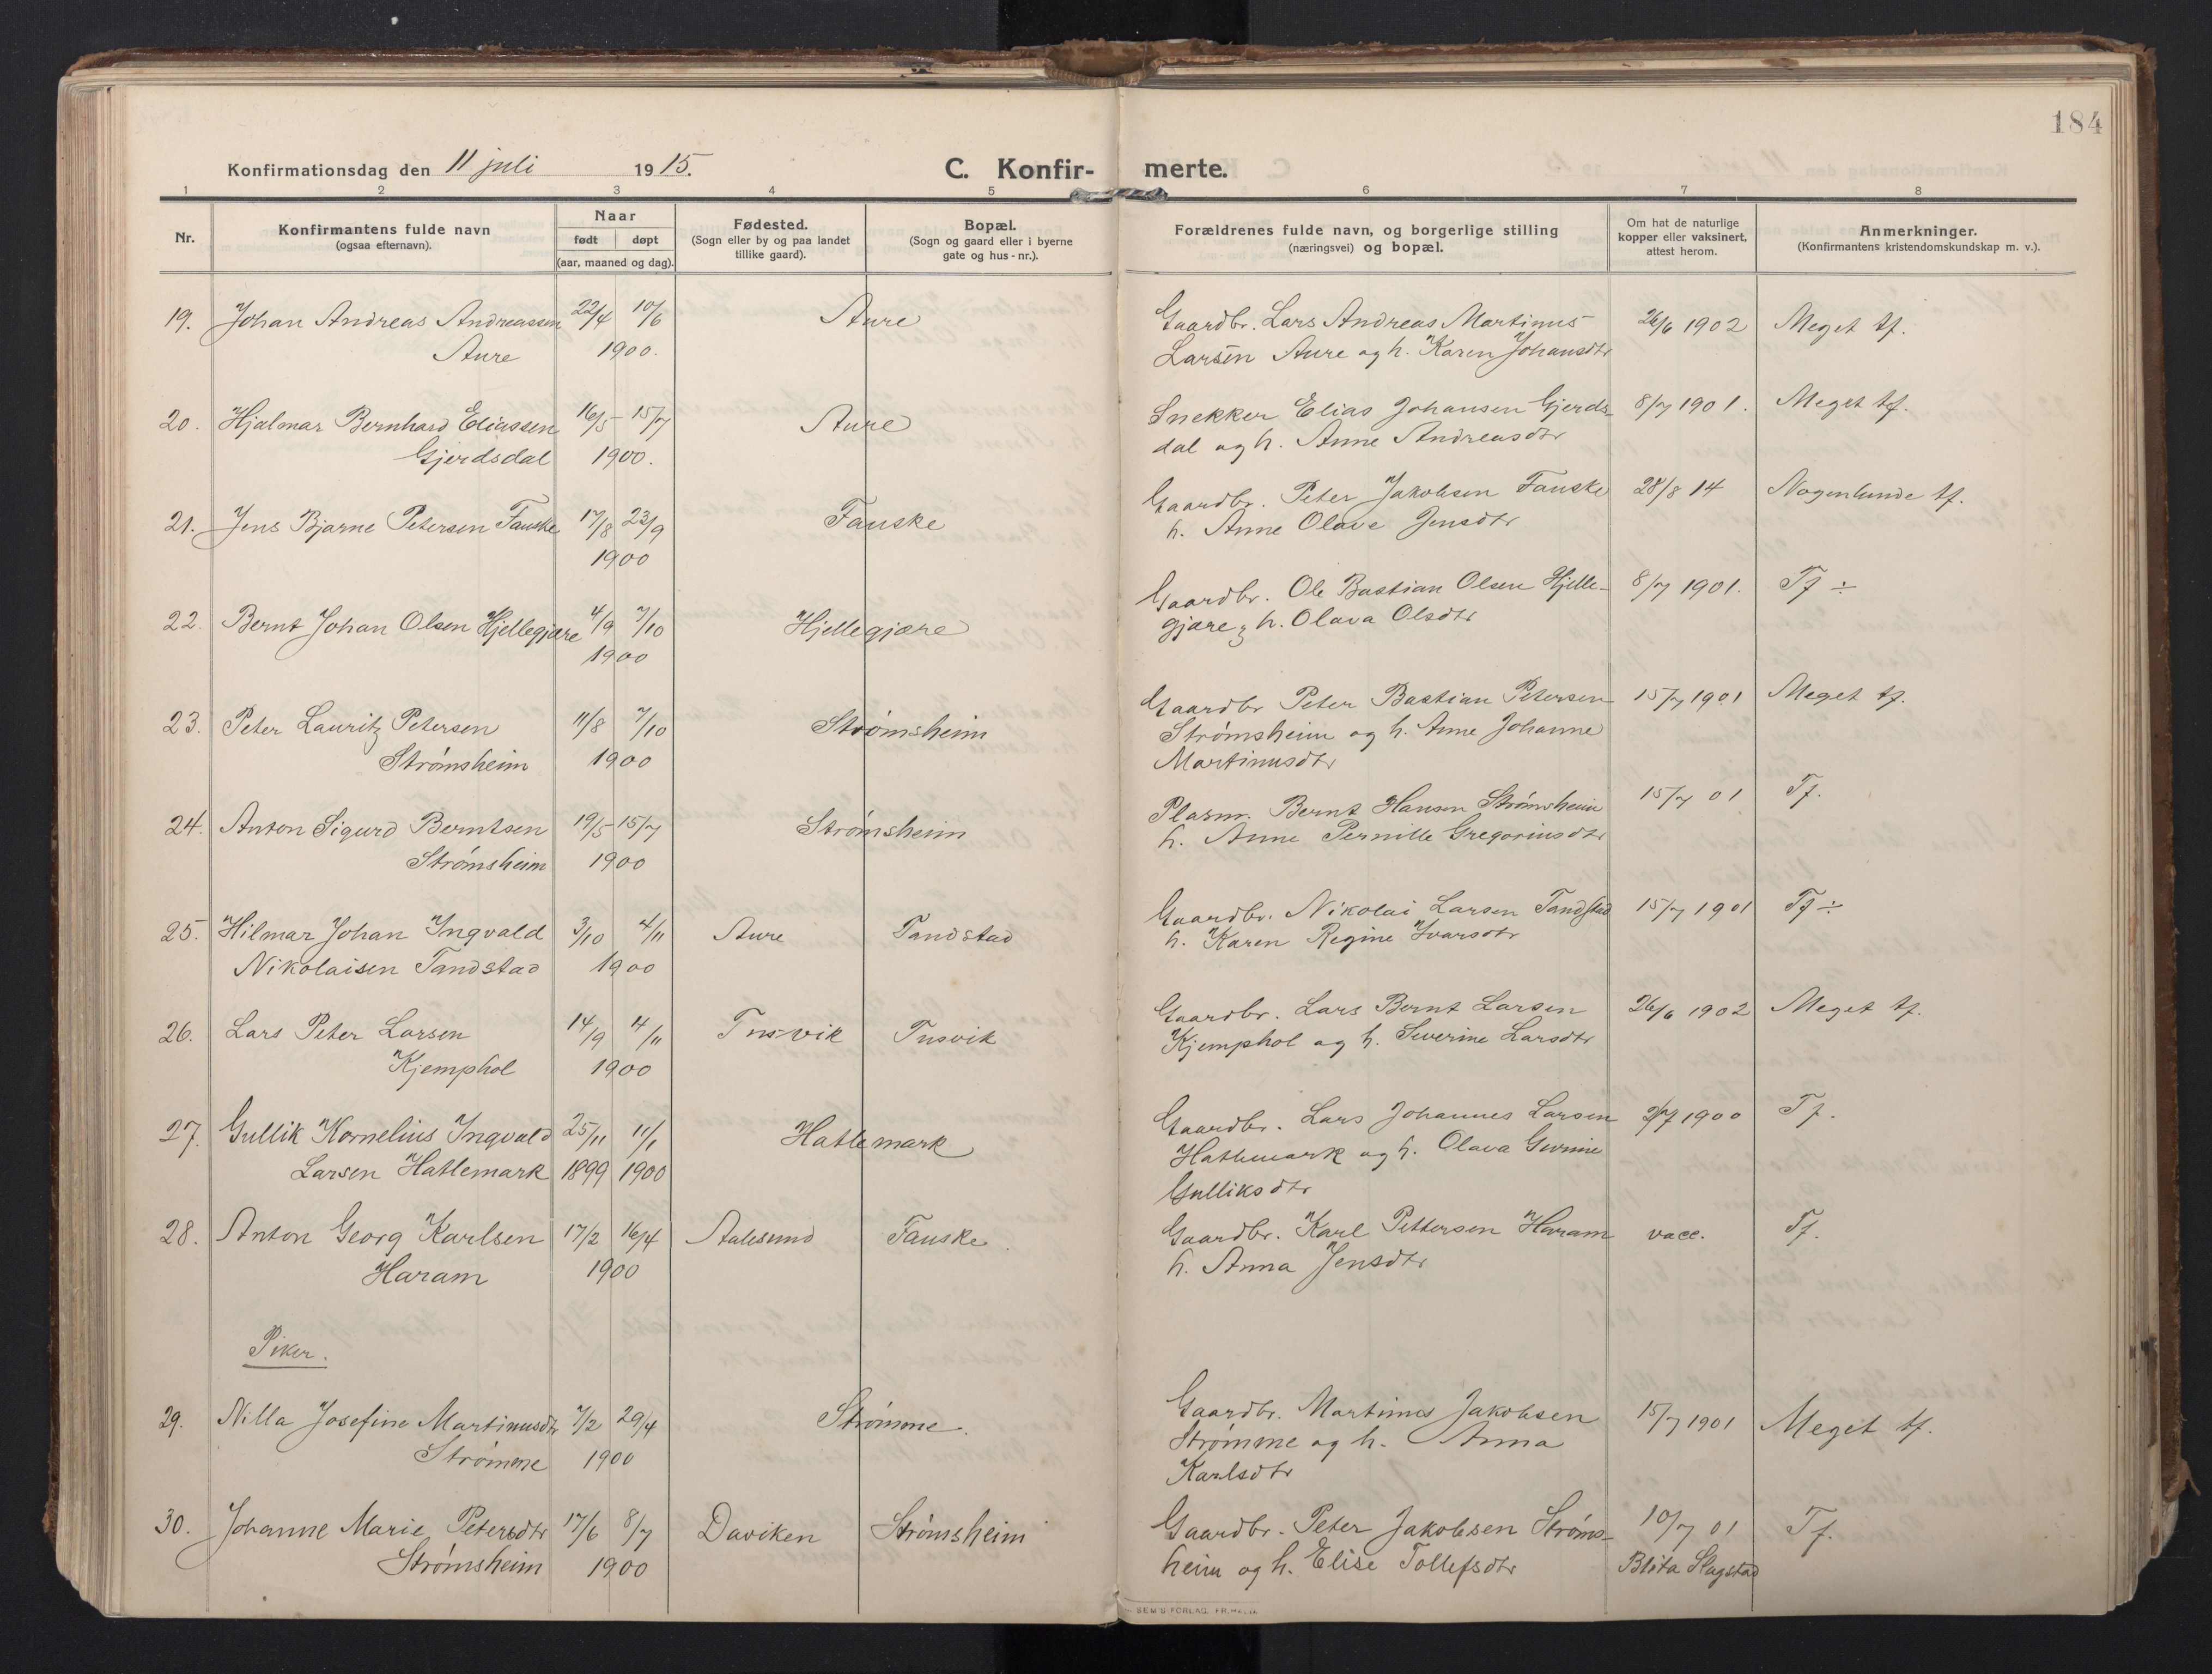 184
Konfirmationsdag den 11 juli 1915.
C. Konfir- merte.
1 2 3 4 5 6 7 8
Nr.
Konfirmantens fulde navn
(ogsaa efternavn).
Naar
født døpt
(aar, maaned og dag).
Fødested.
(Sogn eller by og paa landet
tillike gaard).
Bopæl.
(Sogn og gaard eller i byerne
gate og hus-nr.).
Forældrenes fulde navn, og borgerlige stilling
(næringsvei) og bopæl.
Om hat de naturlige
kopper eller vaksinert,
attest herom.
Anmerkninger.
(Konfirmantens kristendomskundskap m. v.).
19. Johan Andreas Andreassen 22/4 10/6 Aure Gaardbr. Lars Andreas Martinus 26/6 1902 Meget tf.
Aure 1900. Larsen Aure og h. Karen Johansdtr
20. Hjalmar Bernhard Eliassen 16/5 - 15/7 Aure Snekker Elias Johansen Gjerds- 8/7 1901. Meget tf.
Gjerdsdal 1900. dal og h. Anne Andreasdtr
21. Jens Bjarne Petersen Fauske 17/8 23/9 Fauske Gaardbr. Peter Jakobsen Fauske 28/8 14 Nogenlunde tf.
1900 h. Anne Olave Jensdtr
22. Bernt Johan Olsen Hjellegjære 4/9 7/10 Hjellegjære Gaardbr. Ole Bastian Olsen Hjelle- 8/7 1901. Tf ÷
1900 gjære, h. Olava Olsdtr
23. Peter Lauritz Petersen 11/8 7/10 Strømsheim Gaardbr Peter Bastian Petersen 15/7 1901 Meget tf.
Strømsheim 1900 Strømsheim og h. Anne Johanne
Martinusdtr
24. Anton Sigurd Berntsen 19/5 - 15/7 Strømsheim Plasm. Bernt Hansen Strømsheim 15/7 01 Tf.
Strømsheim 1900 h. Anne Pernille Gregoriusdtr
25. Hilmar Johan Ingvald 3/10 4/11 Aure Tandstad Gaardbr. Nikolai Larsen Tandstad 15/7 1901 Tf ÷
Nikolaisen Tandstad 1900 h. Karen Regine Ivarsdtr
26. Lars Peter Larsen 14/9 4/11 Tusvik Tusvik Gaardbr. Lars Bernt Larsen 26/6 1902 Meget tf.
Kjemphol 1900 Kjemphol og h. Severine Larsdtr
27. Gullik Kornelius Ingvald 25/11 11/1 Hatlemark Gaardbr. Lars Johannes Larsen 2/7 1900 Tf.
Larsen Hatlemark 1899 1900 Hatlemark og h. Olava
Gulliksdtr
28. Anton Georg Karlsen 17/2 16/4 Aalesund Fauske. Gaardbr. Karl Pettersen Haram vacc. Tf.
Haram 1900 h. Anna Jensdtr
Piker.
29. Nilla Josefine Martinusdtr 7/2 29/4 Strømme. Gaardbr. Martinus Jakobsen 15/7 1901 Meget tf.
Strømme 1900 Strømme og h. Anna
Karlsdtr
30. Johanne Marie Petersdtr 17/6 8/7 Daviken Strømsheim Gaardbr. Peter Jakobsen Strøms- 10/7 01 Tf.
Strømsheim 1900 heim og h. Elise Tollefsdtr Slagstad
SEM'S FORLAG, FR.HALD.